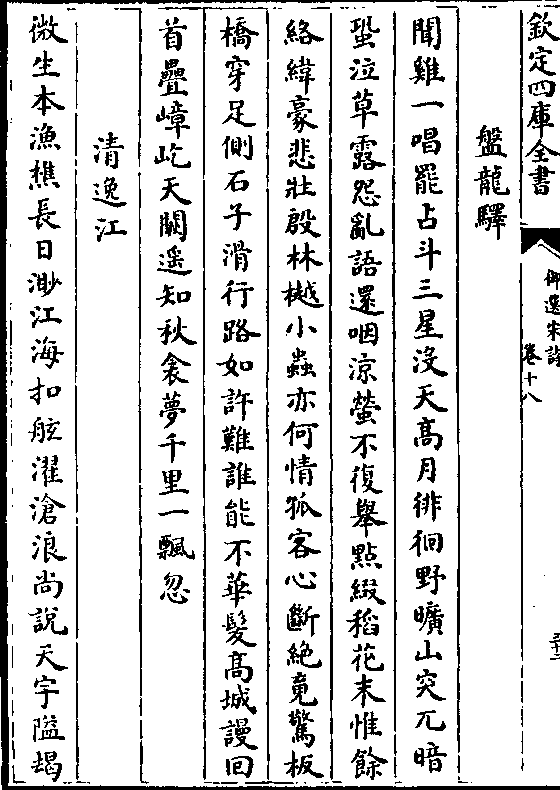 欽定四庫全書
御選宋詩
卷十八
盤龍驛
聞雞一唱罷占斗三星沒天高月徘徊野曠山突兀暗
蛩泣草露怨亂語還咽涼螢不復舉點綴稻花末惟餘
絡緯豪悲壯殷林樾小蟲亦何情孤客心斷絕竟驚板
橋穿足側石子滑行路如許難誰能不華髮高城謾回
首疊嶂屹天闕遥知秋衾夢千里一飄忽
清逸江
微生本漁樵長日渺江海扣舷濯滄浪尚說天宇隘朅